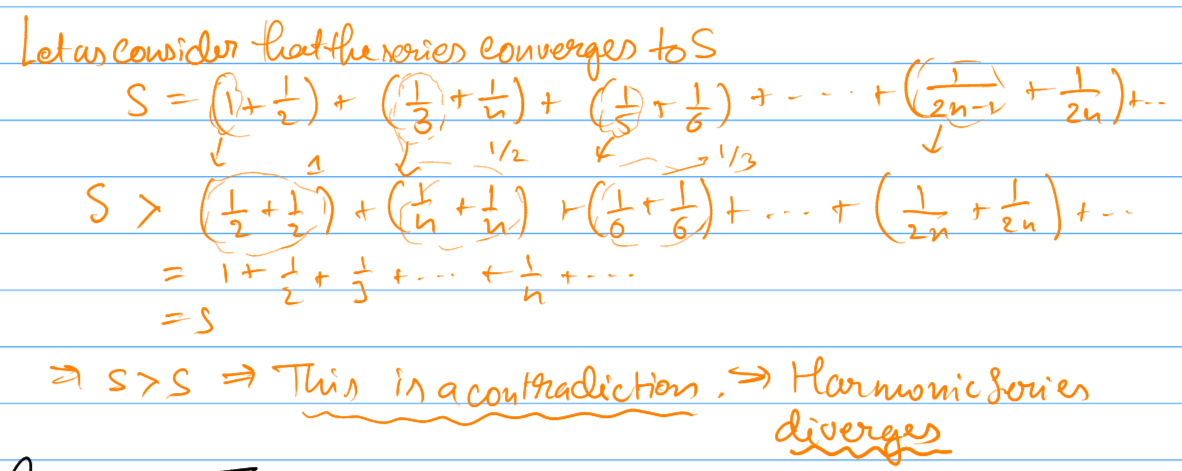 Let us consider that the series converges to S
S = (1 + 1/2) + (1/3 + 1/4) + (1/5 + 1/6) + - - - - + (1/(2n-1) + 1/2n) + - -
1 1/2 1/3
S > (1/2 + 1/2) + (1/4 + 1/4) + (1/6 + 1/6) + - - - + (1/2n + 1/2n) + - -
= 1 + 1/2 + 1/3 + - - - + 1/n + - - -
= S
⇒ S > S ⇒ This is a contradiction. ⇒ Harmonic Series
diverges